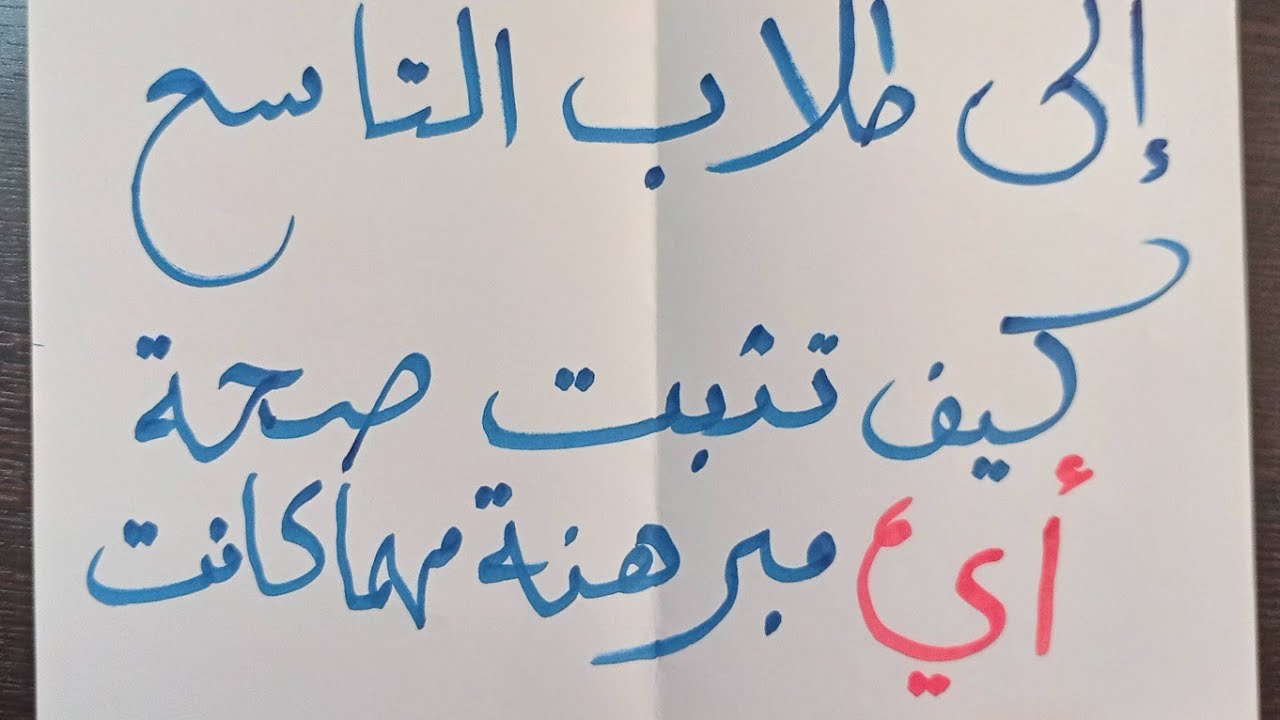 إلى طلاب التاسع
كيف تثبت صحة
أي مبرهنة مهما كانت